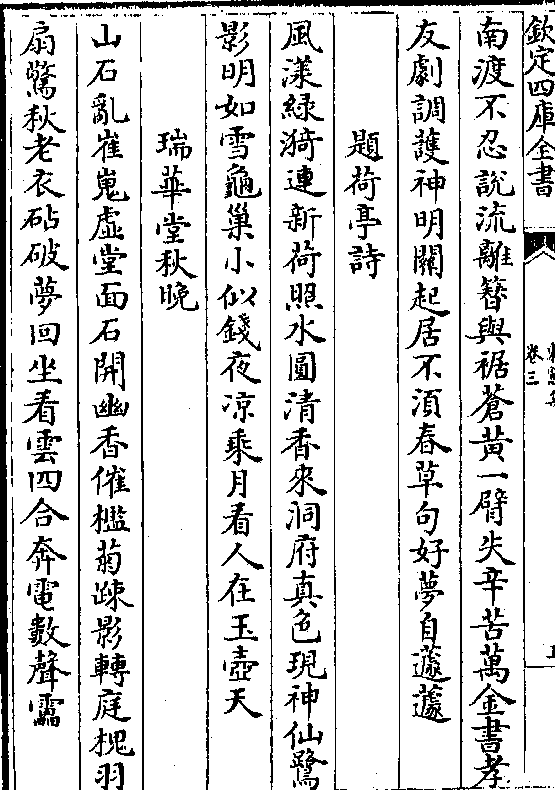 欽定四庫全書
卷三
南渡不忍說流離簪與裾蒼黄一臂失辛苦萬金書孝
友劇調護神明關起居不須春草句好夢自蘧蘧
題荷亭詩
風漾緑漪連新荷照水圓清香來洞府真色現神仙鷺
影明如雪龜巢小似錢夜凉乘月看人在玉壺天
瑞華堂秋晚
山石亂崔嵬虚堂面石開幽香催檻菊踈影轉庭槐羽
扇驚秋老衣砧破夢回坐看雲四合奔電數聲靁